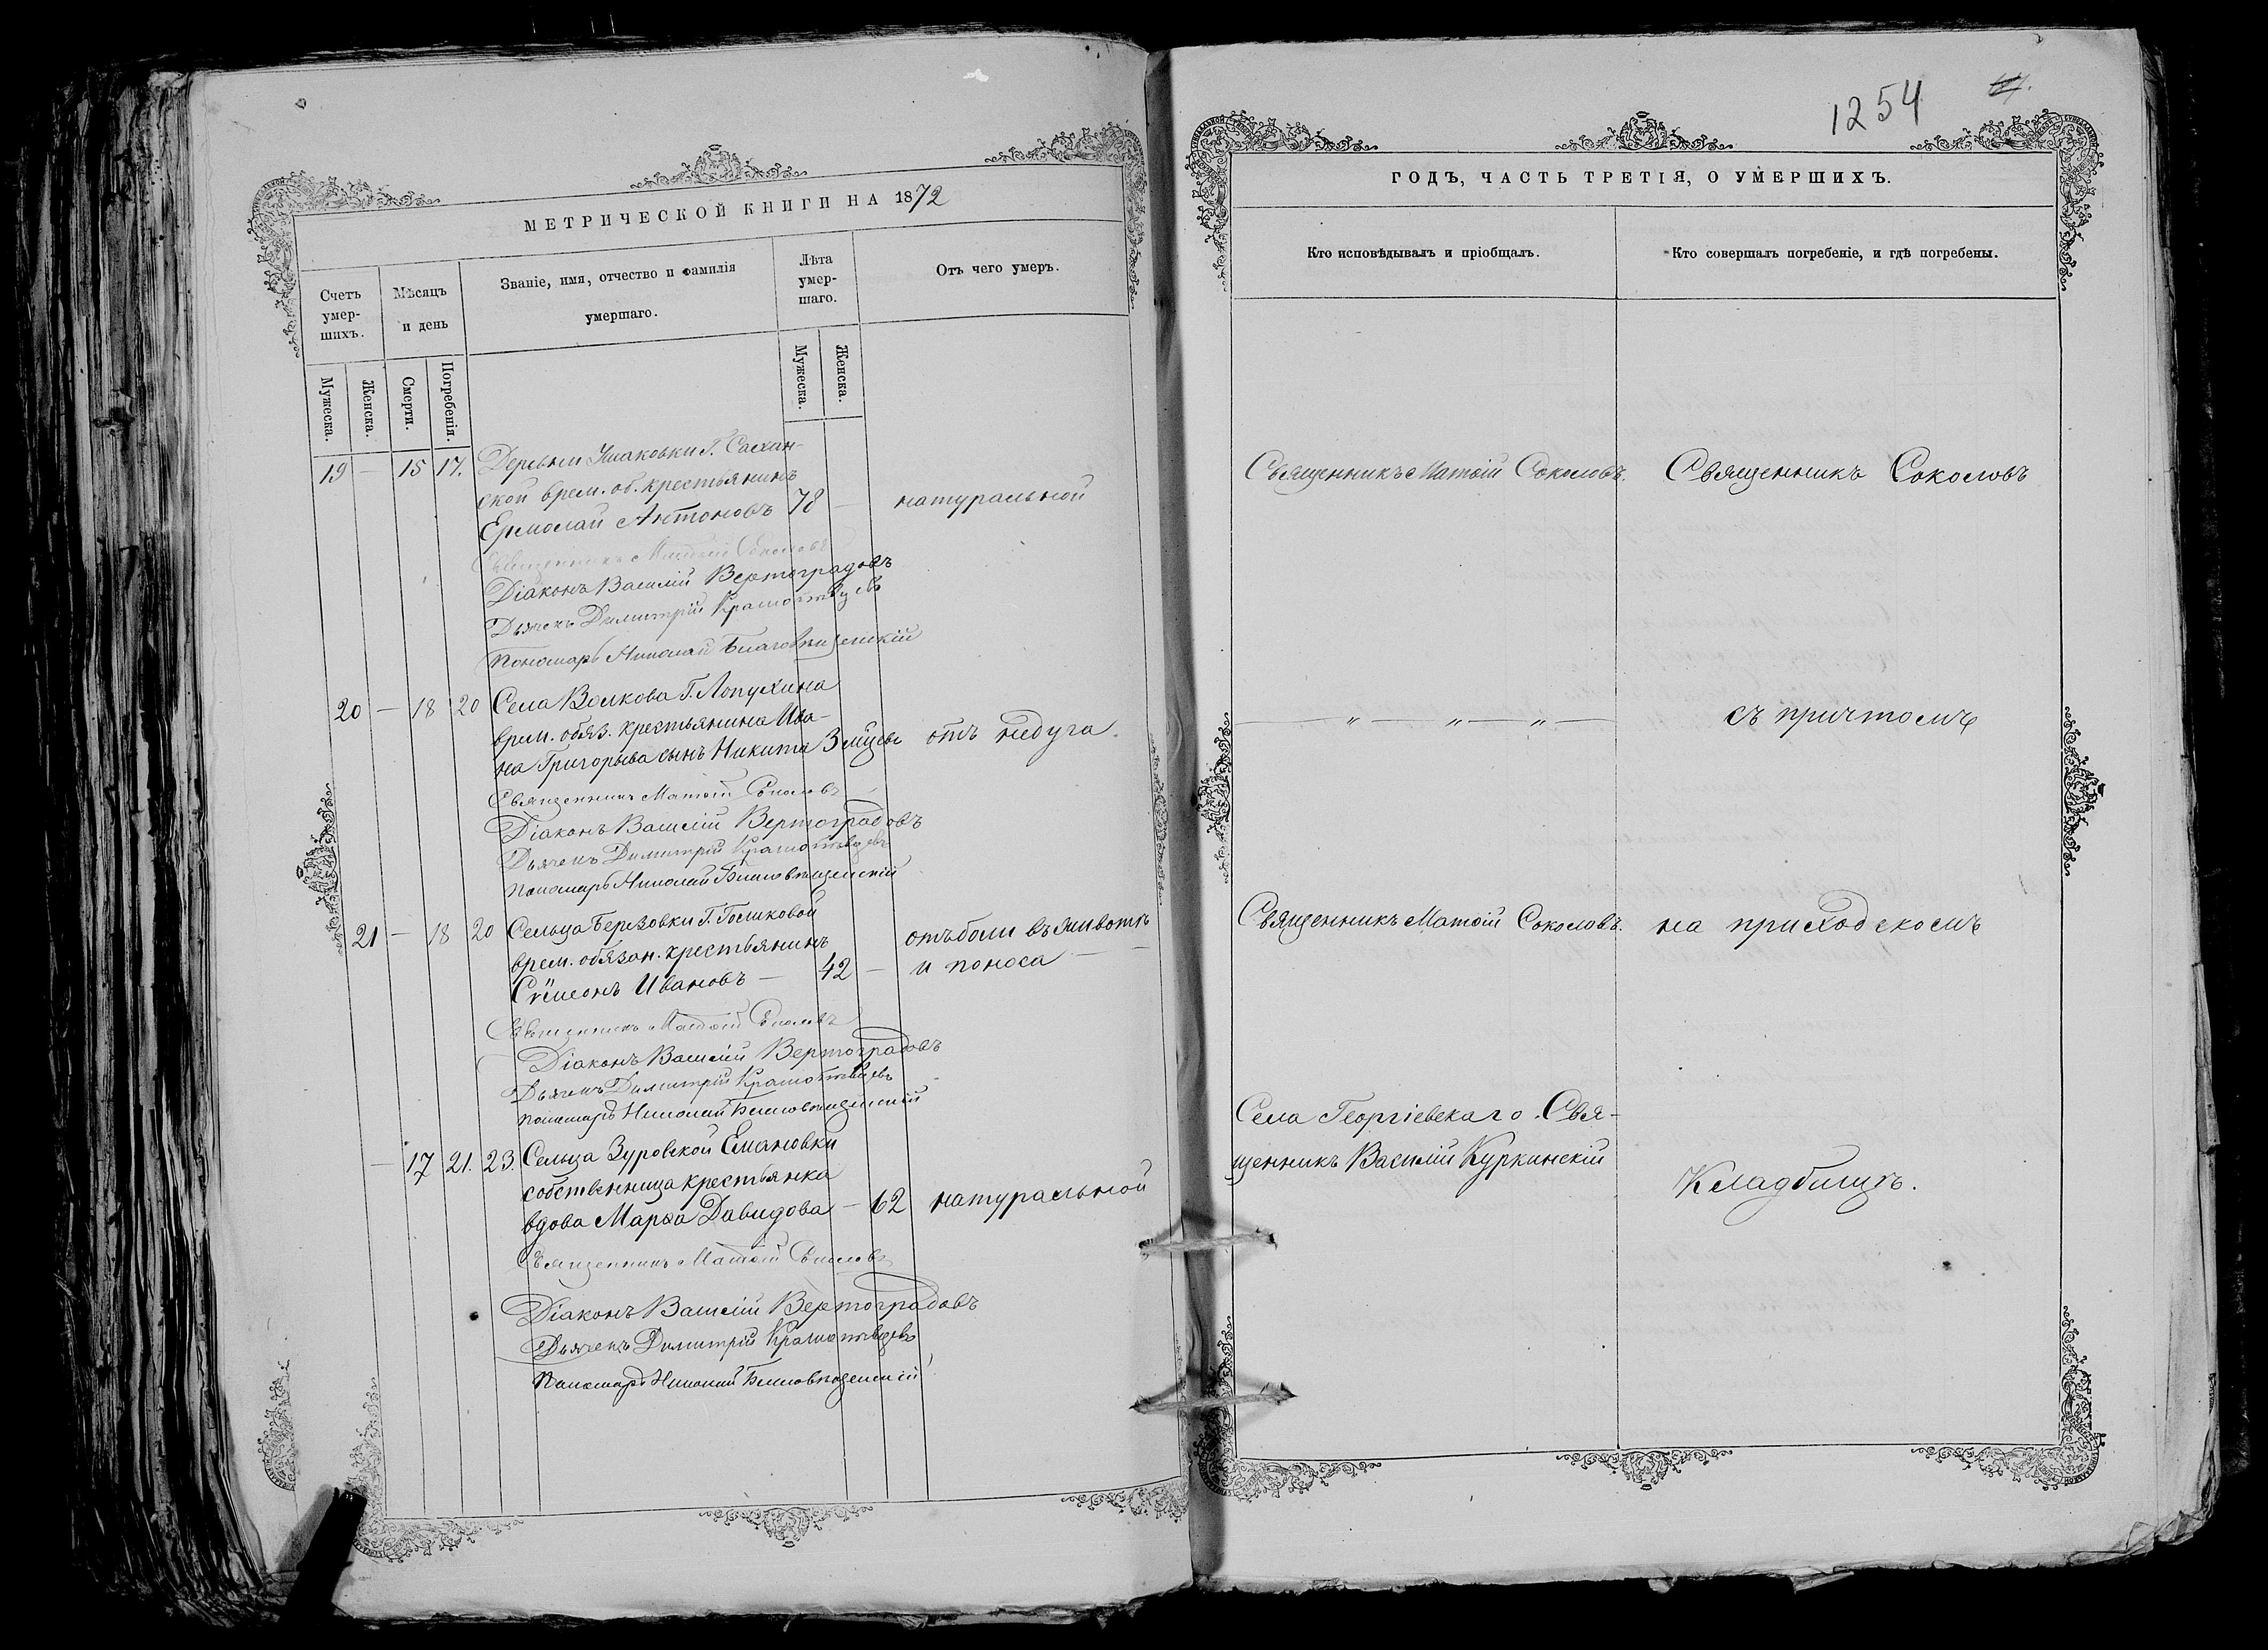 МЕТРИЧЕСКОЙ КНИГИ НА 1872
Счетъ умер-шихъ.
Мѣсяцъ и день
Званіе, имя, отчество и фамилія умершаго.
Лѣта умер-шаго.
Отъ чего умеръ.
Мужеска.
Женска.
Смерти.
Погребенія.
Мужеска.
Женска.
19 — 15 17. Деревни Ушаковки Г.
ской врем. об. крестьянинъ
Ермолай Антоновъ 78 — натуральной
Священникъ Матѳій Соколовъ
Діаконъ Василій Вертоградовъ
Дьячекъ Димитрій
Пономарь Николай Благовѣщенскій
20 — 18 20 Села Волкова Г. Лопухина
врем. обяз. крестьянина Ива-
на Григорьева сынъ Никита 3 отъ недуга.
Священникъ Матѳій Соколовъ
Діаконъ Василій Вертоградовъ
Дьячекъ Димитрій
Пономарь Николай Благовѣщенскій
21 — 18 20 Сельца Березовки Г. Голиковой
врем. обязан. крестьянинъ
Сѵмеонъ Ивановъ — 42 — отъ боли въ животѣ
и поноса —
Священникъ Матѳій Соколовъ
Діаконъ Василій Вертоградовъ
Дьячекъ Димитрій
Пономарь Николай Благовѣщенскій
— 17 21. 23. Сельца Зуровской Емановки
собственница крестьянка
вдова Марѳа Давидова — 62 натуральной
Священникъ Матѳій Соколовъ
Діаконъ Василій Вертоградовъ
Дьячекъ Димитрій
Пономарь Николай Благовѣщенскій
1254
ГОДЪ, ЧАСТЬ ТРЕТІЯ, О УМЕРШИХЪ.
Кто исповѣдывалъ и пріобщалъ.
Кто совершалъ погребеніе, и гдѣ погребены.
Священникъ Матѳій Соколовъ. Священникъ Соколовъ
— „ — „ — „ — съ причтомъ
Священникъ Матѳій Соколовъ. на приходскомъ
Села Георгіевскаго Свя-
щенникъ Василій Куркинскій
Кладбищѣ.